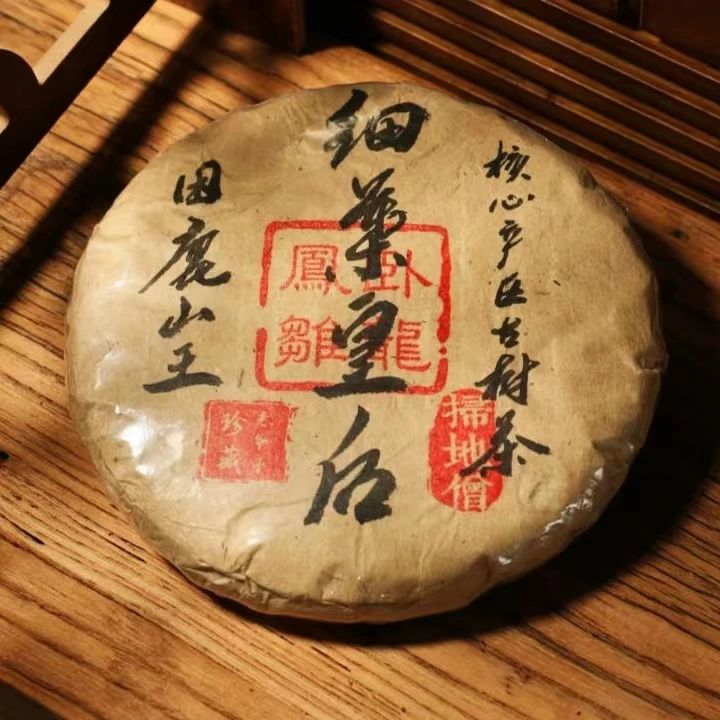 核心产区古树茶
细葉皇后
困鹿山王
卧龍
鳳雛
掃地僧
珍藏